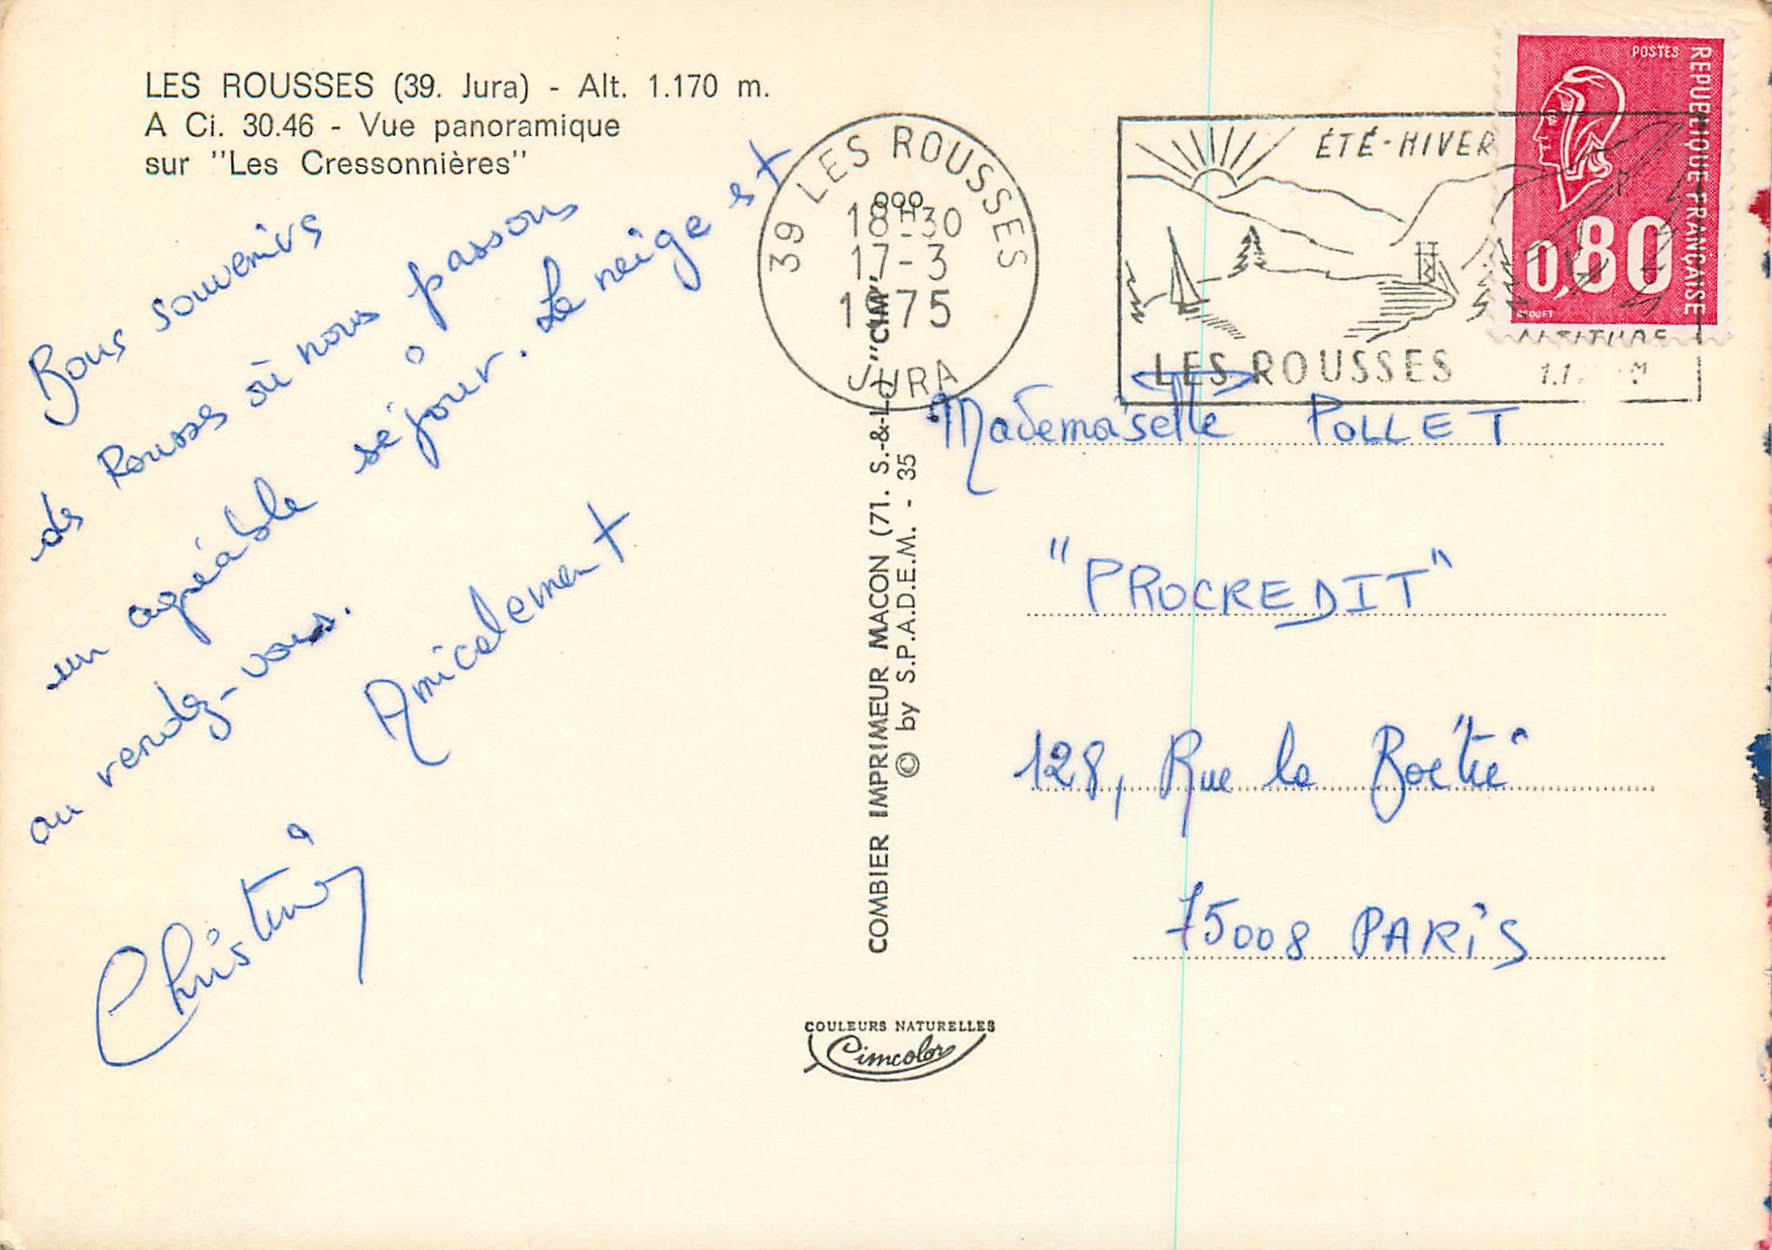 LES ROUSSES (39. Jura) - Alt. 1.170 m.
A Ci. 30.46 - Vue panoramique
sur "Les Cressonnières"
Bons souvenirs
des Rousses où nous passons
un agréable séjour. La neige est
au rendez-vous.
Amicalement
Christine
39 LES ROUSSES
18H30
17-3
1975
JURA
ÉTÉ-HIVER
LES ROUSSES
ALTITUDE
POSTES
REPUBLIQUE FRANÇAISE
0,80
COMBIER IMPRIMEUR MACON (71. S.-&-L.) "CIM"
© by S.P.A.D.E.M. - 35
Mademoiselle POLLET
"PROCREDIT"
128, Rue la Boëtie
75008 PARIS
COULEURS NATURELLES
Cimcolor